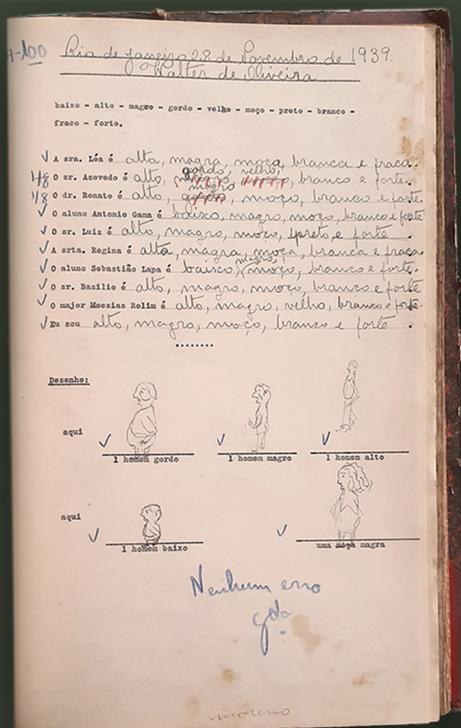 100
Rio de Janeiro 28 de Novembro de 1939.
Walter de Oliveira
baixo - alto - magro - gordo - velho - moço - preto - branco -
fraco - forte.
A sra. Léa é alta, magra, moça, branca e fraca.
gordo, velho,
O sr. Azevedo é alto, branco e forte.
magro
O dr. Renato é alto, moço, branco e forte.
O aluno Antonio Gama é baixo, magro, moço, branco e forte
O sr. Luiz é alto, magro, moço, preto e forte.
A srta. Regina é alta, magra, moça, branca e fraca
magro,
O aluno Sebastião Lapa é baixo, moço, branco e forte.
O sr. Bazilio é alto, magro, moço, branco e forte
O major Messias Rolim é alto, magro, velho, branco e forte.
Eu sou alto, magro, moço, branco e forte.
........
Desenhe:
aqui
1 homem gordo 1 homem magro 1 homem alto
aqui
1 homem baixo uma moça magra
Nenhum erro
moreno